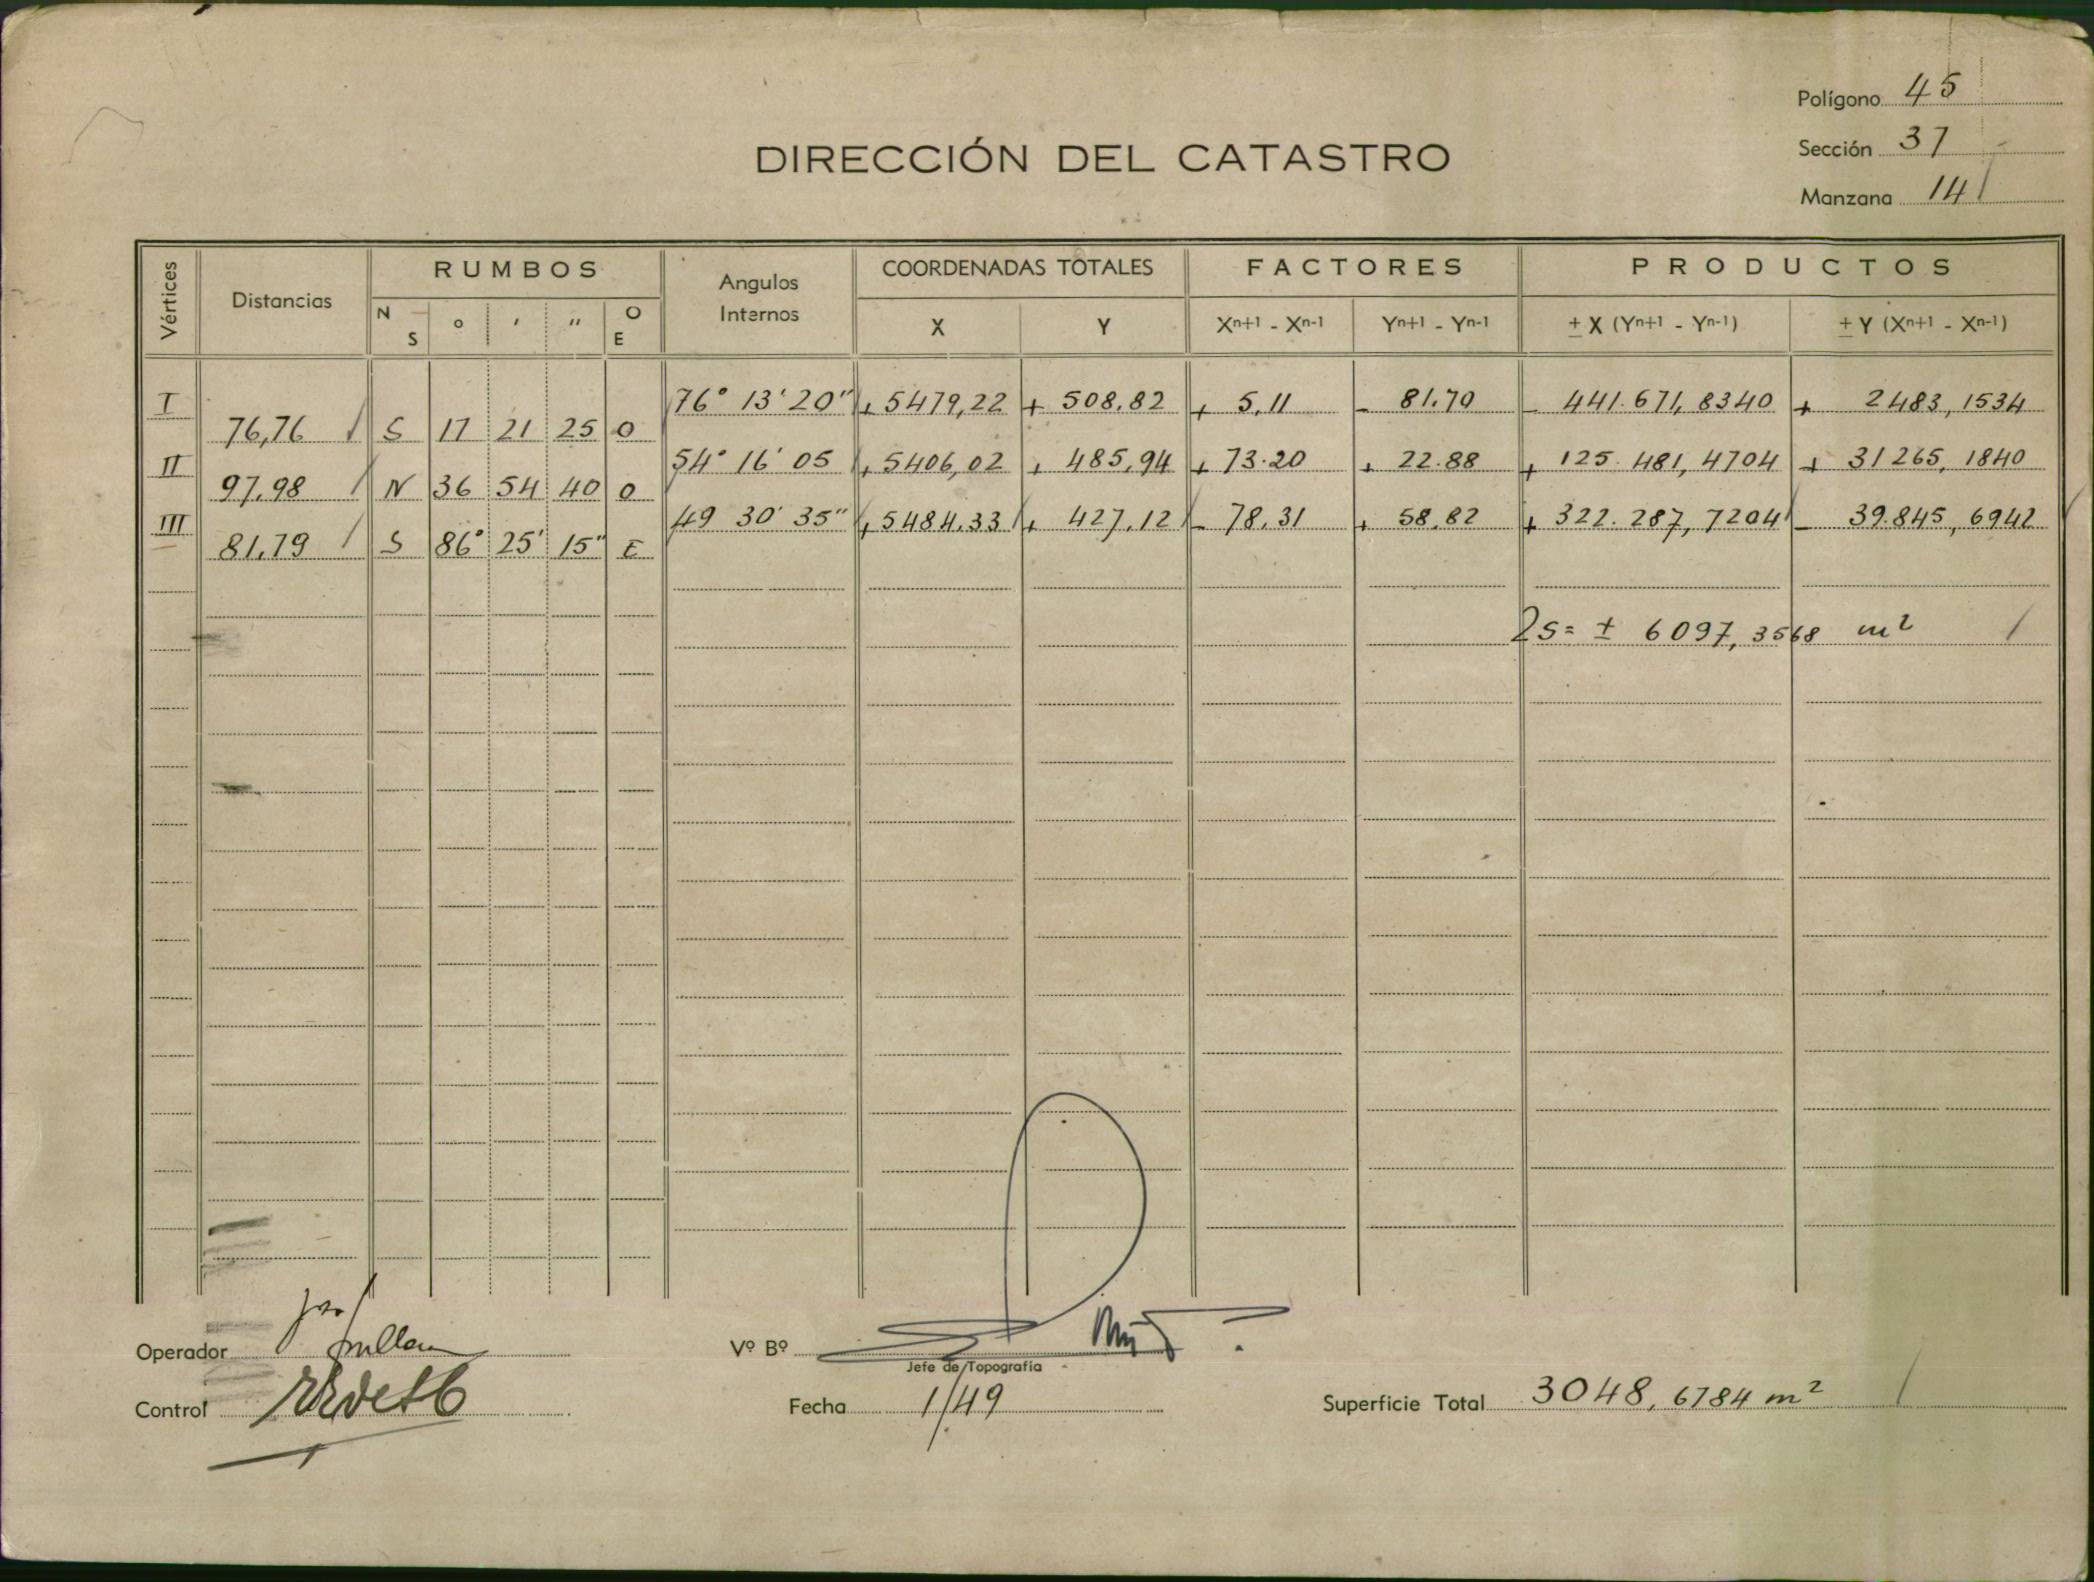 Polígono 45
Sección 37
Manzana 14
DIRECCIÓN DEL CATASTRO
Vértices Distancias RUMBOS Angulos Internos COORDENADAS TOTALES FACTORES PRODUCTOS
N S ° ' " O E X Y Xn+1 - Xn-1 Yn+1 - Yn-1 ± X (Yn+1 - Yn-1) ± Y (Xn+1 - Xn-1)
I 76° 13' 20" + 5479,22 + 508.82 + 5,11 - 81.70 - 441.671,8340 + 2483,1534
76,76 S 17 21 25 O
II 54° 16' 05 + 5406,02 + 485,94 + 73.20 + 22.88 + 125.481,4704 + 31265,1840
97,98 N 36 54 40 O
III 49 30' 35" + 5484.33 + 427,12 - 78,31 + 58.82 + 322.287,7204 - 39.845,6942
81,79 S 86° 25' 15" E
2s = ± 6097,3568 m²
Operador
Vº Bº
Jefe de Topografía
Control
Fecha 1/49
Superficie Total 3048,6784 m²